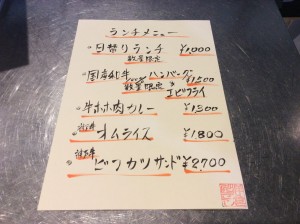 ランチメニュー
日替りランチ ¥1,000
数量限定
国産牛 100% ハンバーグ ¥1500
数量限定 & エビフライ
牛ホホ肉カレー ¥1500
オムライス ¥1800
ビフカツサンド ¥2,700